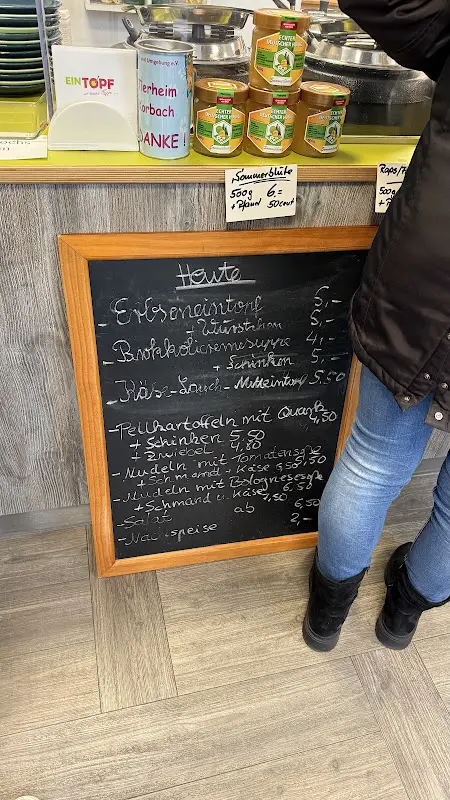 EINTOPF
und Umgebung e.V.
Tierheim
Korbach
DANKE!
ECHTER
DEUTSCHER HONIG
Sommerblüte
500g 6.=
+ Pfand 50 cent
Raps/
500g
+ P
Heute
- Erbseneintopf 5,-
+ Würstchen 5,-
- Brokkolicremesuppe 4,-
+ Schinken 5,-
- Käse-Lauch-Metteintopf 5.50
- Pellkartoffeln mit Quark 4,50
+ Schinken 5,50
+ Zwiebel 4,80
- Nudeln mit Tomatensoße 5,50
+ Schmand + Käse 6,50
- Nudeln mit Bolognesesoße 6.50
+ Schmand u. Käse 7,50
- Salat ab 6,50
- Nachspeise 2,-